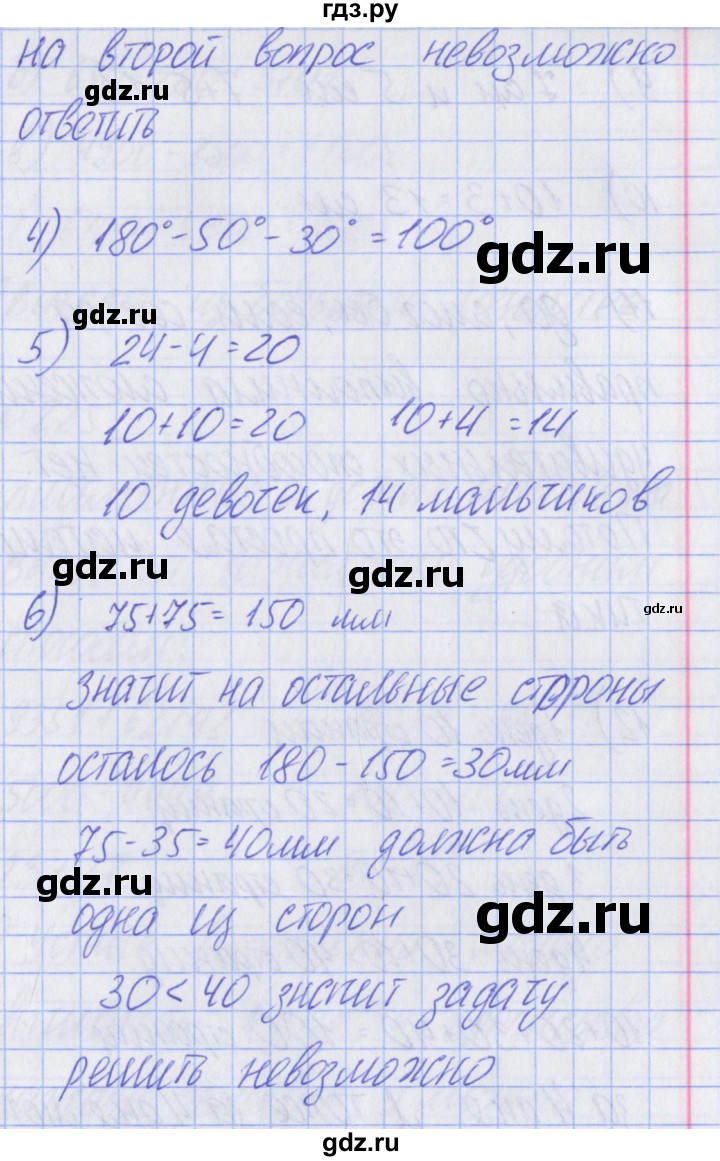 гдз.ру
на второй вопрос невозможно
gdz.ru
ответить
4) 180° - 50° - 30° = 100°
gdz.ru
gdz.ru
5) 24 - 4 = 20
10 + 10 = 20 10 + 4 = 14
gdz.ru
10 девочек, 14 мальчиков
gdz.ru
gdz.ru
gdz.ru
6) 75 + 75 = 150 мм
значит на остальные стороны
gdz.ru
осталось 180 - 150 = 30 мм
75 - 35 = 40 мм должна быть
gdz.ru
одна из сторон
gdz.ru
30 < 40 значит задачу
gdz.ru
решить невозможно
gdz.ru